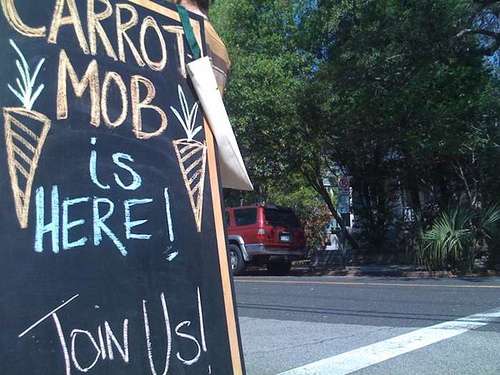 CARROT
MOB
is
HERE!
JOIN US!